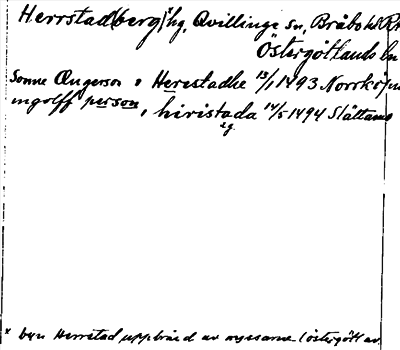 Herrstad(berg), hg, Qvillinge sn, Bråbo hd
Östergötlands ln
Sonne Ungerson i Herestadhe 13/1 1493 Norrköping
ingolff person, hiristada 14/5 1494 Slättamo
* byn Herrstad uppbränd av ryssarne (östergötl av